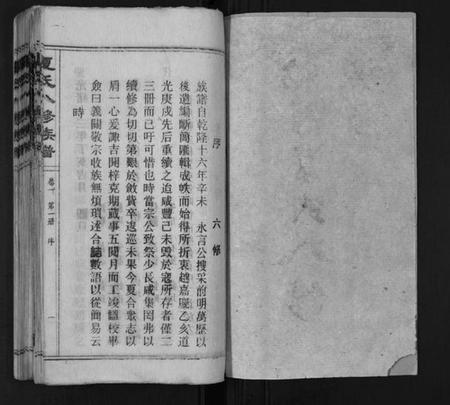 序
六修
族譜自乾隆十六年辛未　永言公搜采前明萬歷以
後遺編斷簡匯輯成帙而始得所折衷越嘉慶乙亥道
光庚戌先后重續之迨咸豐己未毀於寇所存者僅二
三冊而已吁可惜也時當宗公致祭少長咸集罔弗以
續修為切切第艱於斂貲卒逡巡未果今夏合眾志以
肩一心爰諏吉開梓克期蕆事五閱月而工竣讎校畢
僉曰義關敬宗收族無煩瑣述合誌數語以從簡易云
時
夏氏八修族譜
卷一　第一冊　序
一